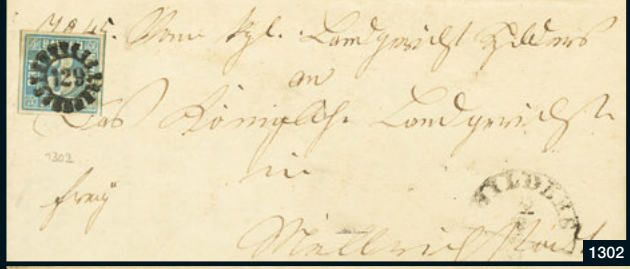 Vom Kgl. Landgericht Hilders
an
Das Königliche Landgericht
in
Mellrichstadt
frey
129
HILDERS
1302
1302